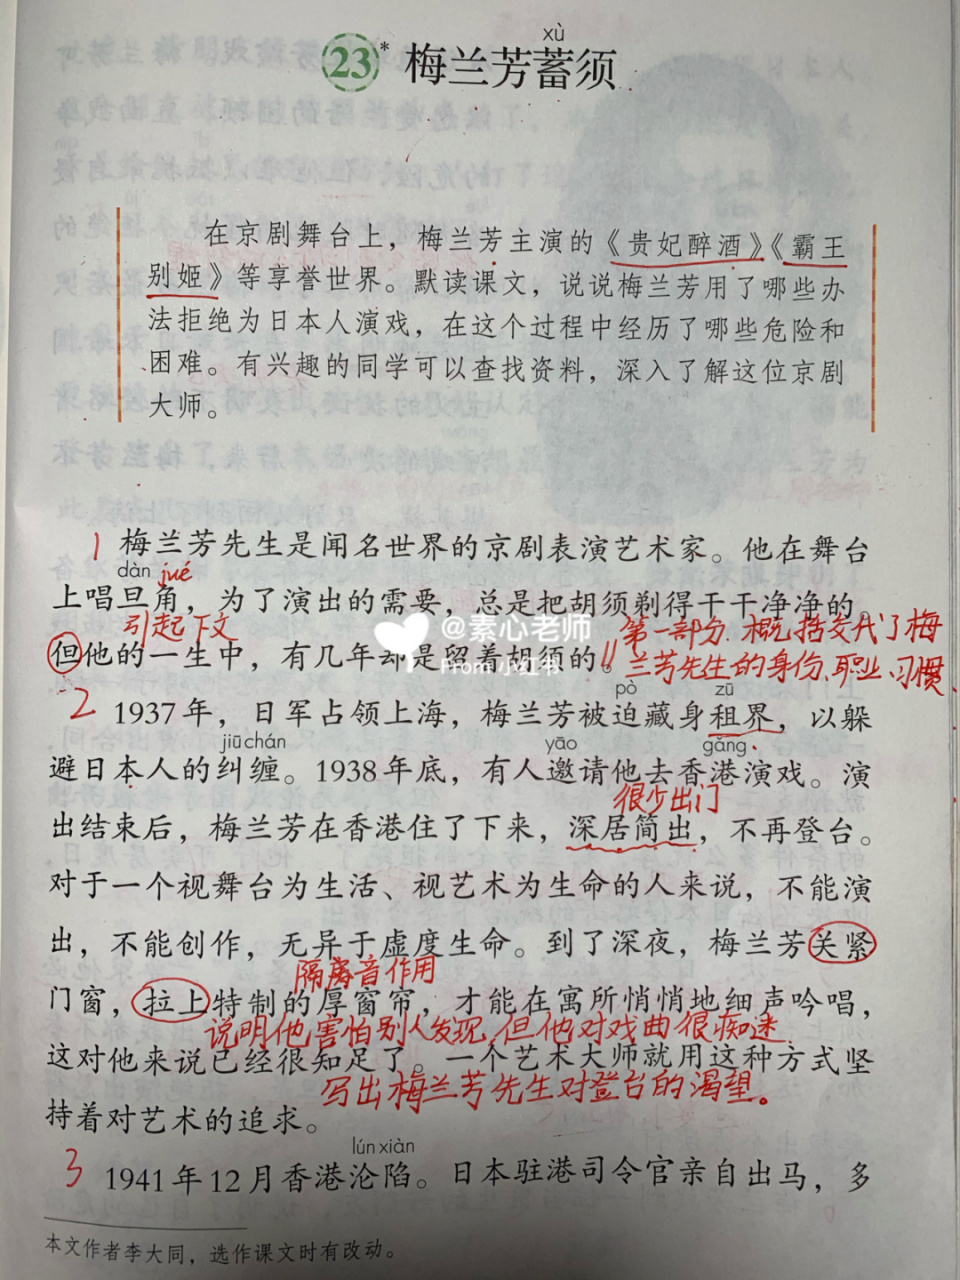 xù
23* 梅兰芳蓄须
在京剧舞台上，梅兰芳主演的《贵妃醉酒》《霸王
别姬》等享誉世界。默读课文，说说梅兰芳用了哪些办
法拒绝为日本人演戏，在这个过程中经历了哪些危险和
困难。有兴趣的同学可以查找资料，深入了解这位京剧
大师。
1 梅兰芳先生是闻名世界的京剧表演艺术家。他在舞台
dàn jué
上唱旦角，为了演出的需要，总是把胡须剃得干干净净的。
引起下文
@素心老师
第一部分.概括交代了梅
但他的一生中，有几年却是留着胡须的。
From 小红书
兰芳先生的身份、职业、习惯.
pò zū
2 1937年，日军占领上海，梅兰芳被迫藏身租界，以躲
jiū chán yāo gǎng
避日本人的纠缠。1938年底，有人邀请他去香港演戏。演
很少出门
出结束后，梅兰芳在香港住了下来，深居简出，不再登台。
对于一个视舞台为生活、视艺术为生命的人来说，不能演
出，不能创作，无异于虚度生命。到了深夜，梅兰芳关紧
隔离音作用
门窗，拉上特制的厚窗帘，才能在寓所悄悄地细声吟唱，
说明他害怕别人发现,但他对戏曲很痴迷.
这对他来说已经很知足了。一个艺术大师就用这种方式坚
写出梅兰芳先生对登台的渴望。
持着对艺术的追求。
lún xiàn
3 1941年12月香港沦陷。日本驻港司令官亲自出马，多
本文作者李大同，选作课文时有改动。